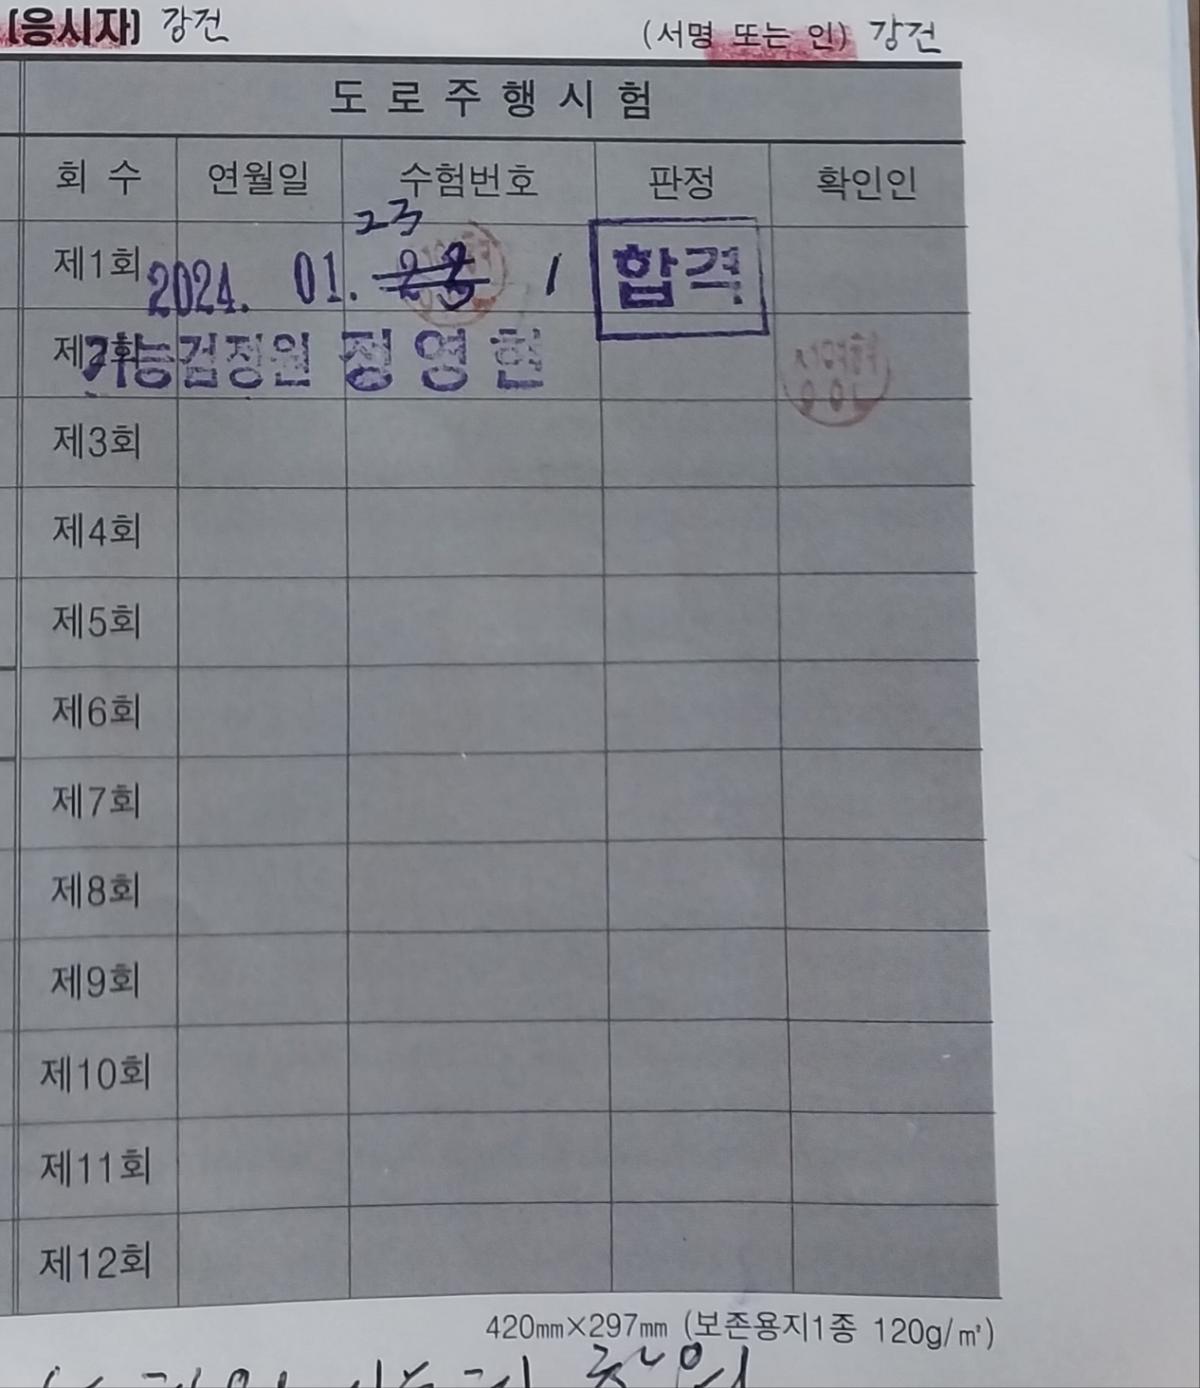 (응시자) 강건 (서명 또는 인) 강건
도로주행시험
회 수 연월일 수험번호 판정 확인인
23
제1회 2024. 01. 1 합격
기능검정원 정영현
제3회
제4회
제5회
제6회
제7회
제8회
제9회
제10회
제11회
제12회
420㎜×297㎜ (보존용지1종 120g/㎡)